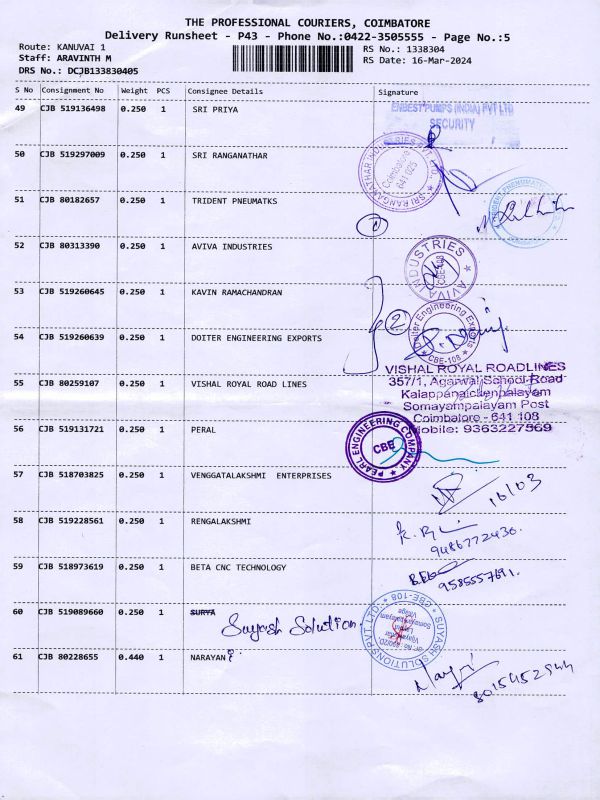 THE PROFESSIONAL COURIERS, COIMBATORE
Delivery Runsheet - P43 - Phone No.:0422-3505555 - Page No.:5
Route: KANUVAI 1
Staff: ARAVINTH M
DRS No.: DCJB133830405
RS No.: 1338304
RS Date: 16-Mar-2024
S No Consignment No Weight PCS Consignee Details Signature
49 CJB 519136498 0.250 1 SRI PRIYA
ENBEST PUMPS (INDIA) PVT LTD
SECURITY
50 CJB 519297009 0.250 1 SRI RANGANATHAR
SRI RANGANATHAR INDUSTRIES PVT. LTD.
Coimbatore
641 025
51 CJB 80182657 0.250 1 TRIDENT PNEUMATKS
1
52 CJB 80313390 0.250 1 AVIVA INDUSTRIES
AVIVA INDUSTRIES
CBE-108
53 CJB 519260645 0.250 1 KAVIN RAMACHANDRAN
2
54 CJB 519260639 0.250 1 DOITER ENGINEERING EXPORTS
Doiter Engineering Exports
CBE-108
55 CJB 80259107 0.250 1 VISHAL ROYAL ROAD LINES
VISHAL ROYAL ROADLINES
357/1, Agarwal School Road
Kalappanaickenpalayam
Somayampalayam Post
Coimbatore - 641 108
Mobile: 9363227569
56 CJB 519131721 0.250 1 PERAL
PEARL ENGINEERING COMPANY
CBE
57 CJB 518703825 0.250 1 VENGGATALAKSHMI ENTERPRISES
16/03
58 CJB 519228561 0.250 1 RENGALAKSHMI
9486772430.
59 CJB 518973619 0.250 1 BETA CNC TECHNOLOGY
9585557691.
60 CJB 519089660 0.250 1 SURYA
Suyash Solution.
SUYASH SOLUTIONS PVT. LTD.
CBE-108
61 CJB 80228655 0.440 1 NARAYAN
8015452944